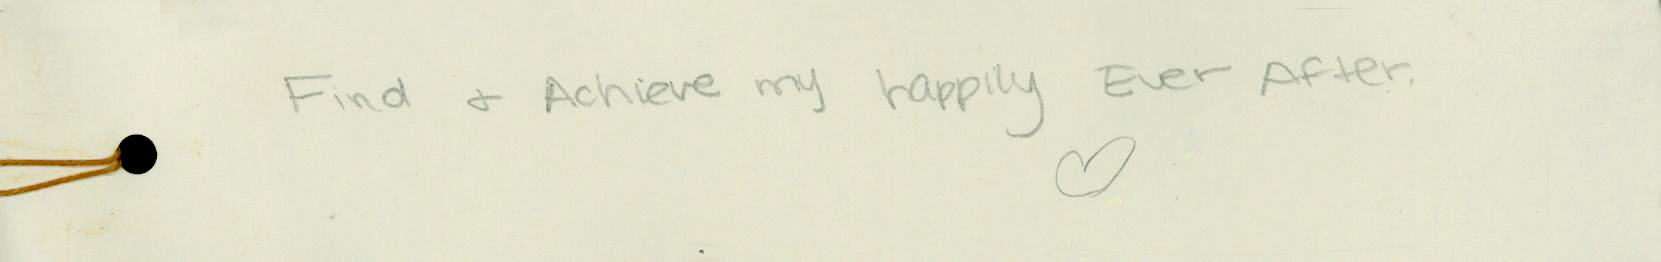 Find & Achieve my happily Ever After.